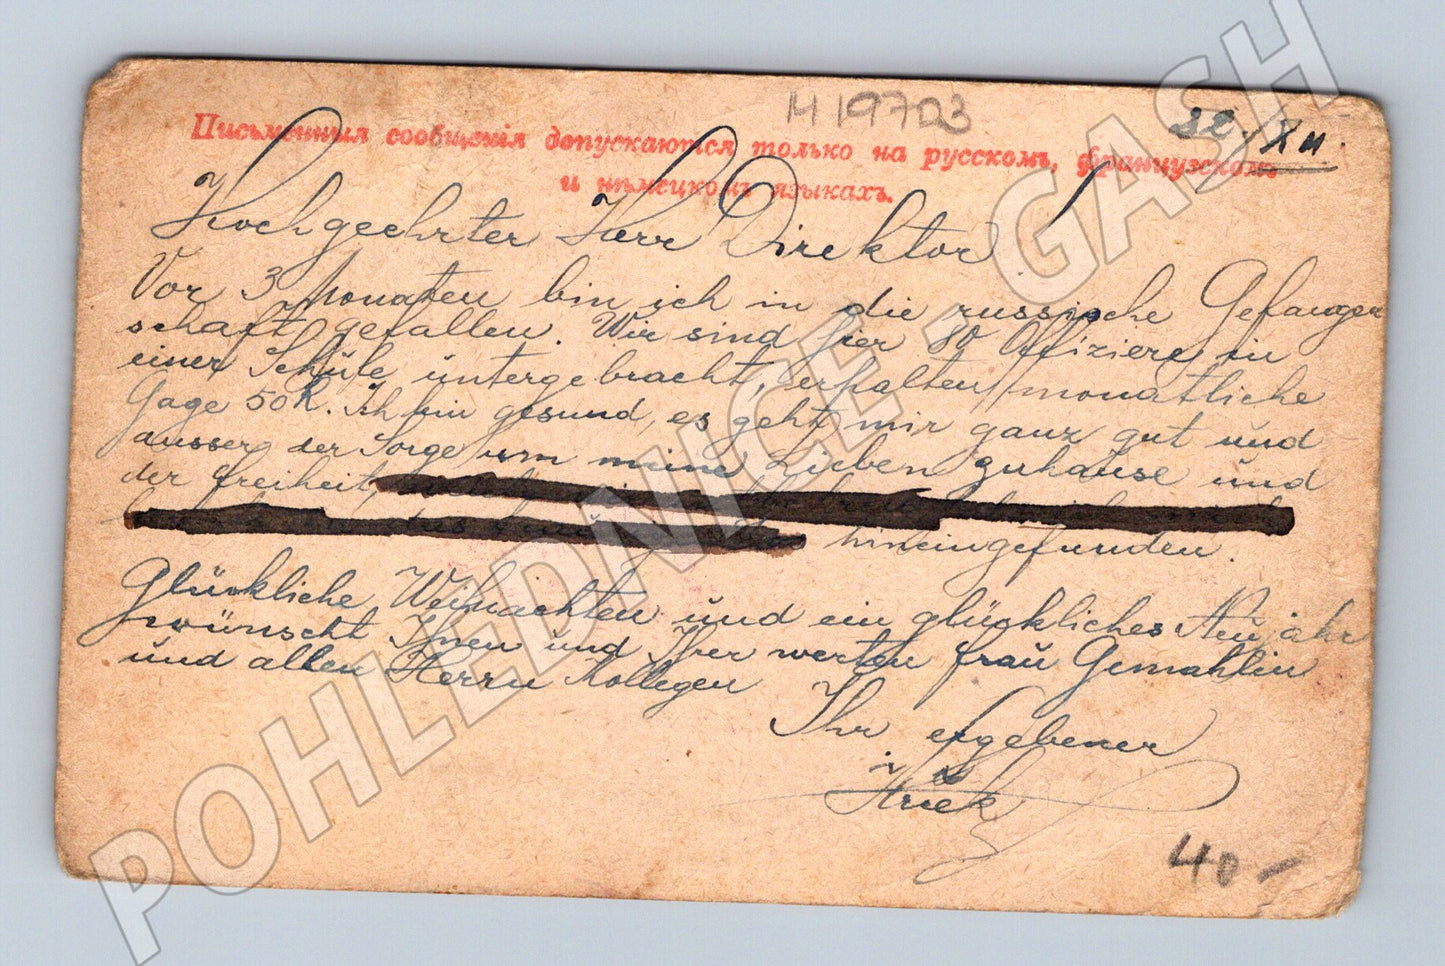 1419723
Письменныя сообщенія допускаются только на русскомъ, французскомъ
и нѣмецкомъ языкахъ.
Hochgeehrter Herr Direktor!
Vor 3 Monaten bin ich in die russische Gefangen
schaft gefallen. Wir sind hier 80 Offiziere in
einer Schule untergebracht, erhalten monatliche
Gage 50 R. Ich bin gesund, es geht mir ganz gut und
ausser der Sorge um meine Lieben zuhause und
der Freiheit,
hineingefunden.
Glückliche Weihnachten und ein glückliches Neujahr
wünscht Ihnen und Ihrer werten Frau Gemahlin
und allen Herrn Kollegen
Ihr ergebener
40-
POHLEDNICE - GASH